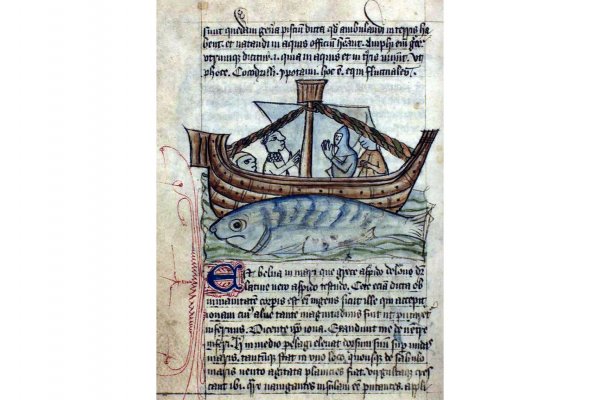 sunt quedam gen'a pisciū dicta qd ambulandi in terris ha
bent. et natandi in aquis officiū heant. Amphi em
dicitur .i. qua in aquis et in tris uiuūt. Vt
phoce. Cocodrilli. ypotami. hoc ē. equi fluctuales.
Est belua in mari que grece aspido delone dr
latine uero aspido testudo. Cete eciā dicta ob
immanitatem corpis est em ingens sicut ille qui accepit
ionam cui' alue tante magnitudinis fuit ut putaret
infernus. Dicente ipo iona. Exaudiuit me de uentre
inferi. in medio pelagi eleuat dorsum suū sup undas
maris. stat in uno loco. quousque de sabulo
maris uento agitata planicies fiat. cres
cant ibi. nauigantes insulam eē putantes. appli